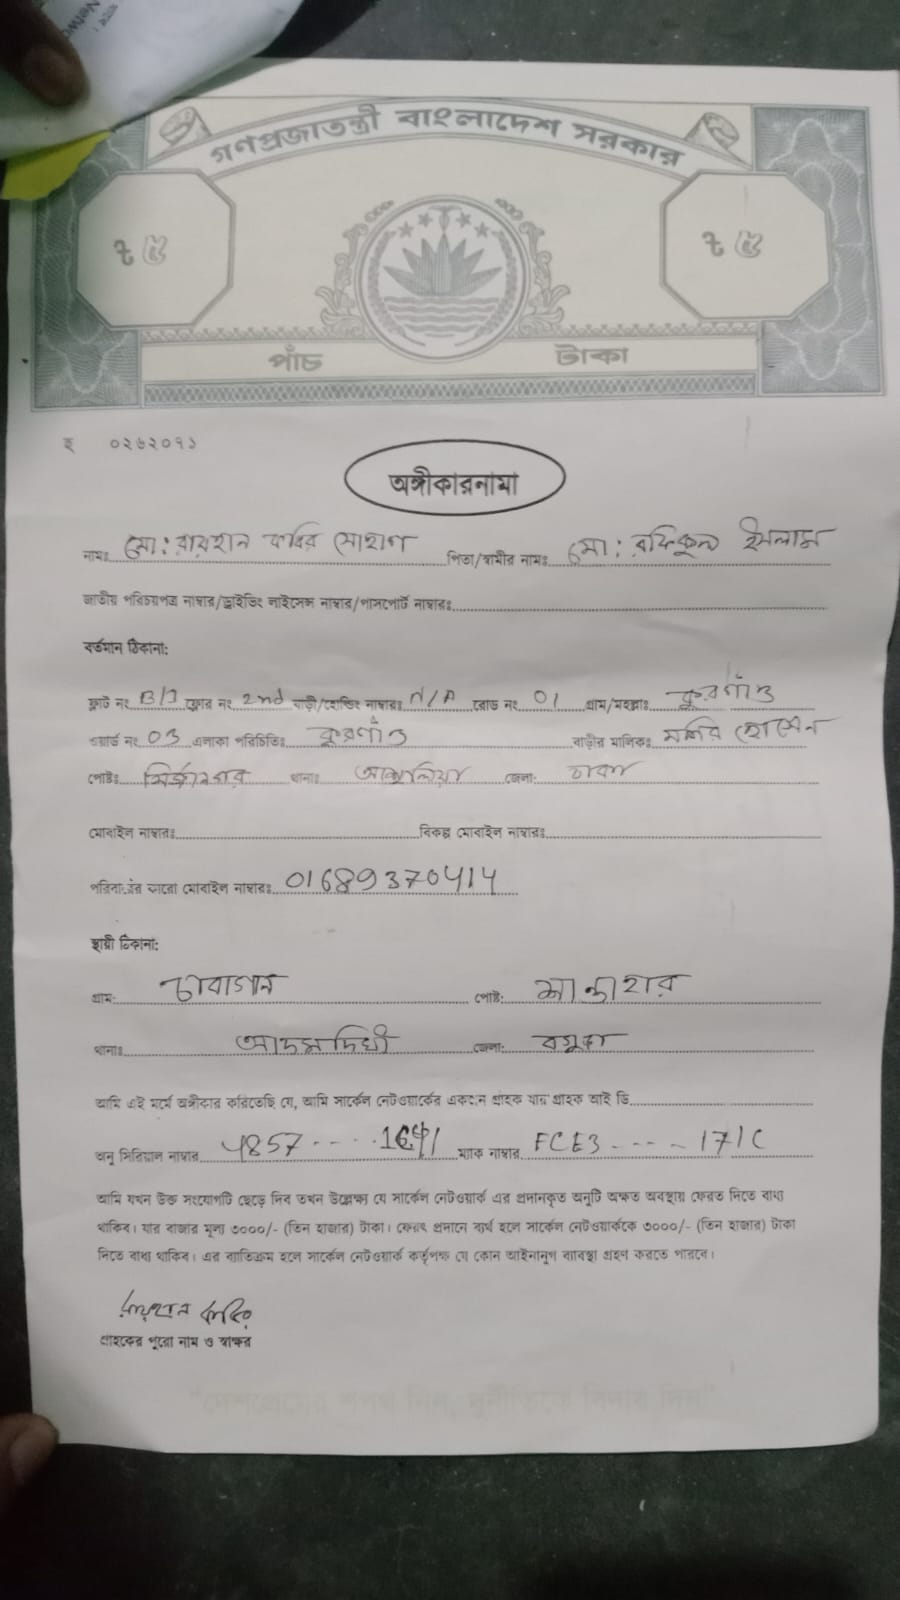 গণপ্রজাতন্ত্রী বাংলাদেশ সরকার
৳ ৫ ৳ ৫
পাঁচ টাকা
হ ০২৬২০৭১
অঙ্গীকারনামা
নামঃ মো: রায়হান কবির সোহাগ পিতা/স্বামীর নামঃ মো: রফিকুল ইসলাম
জাতীয় পরিচয়পত্র নাম্বার/ড্রাইভিং লাইসেন্স নাম্বার/পাসপোর্ট নাম্বারঃ
বর্তমান ঠিকানা:
ফ্লাট নং B/1 ফ্লোর নং 2nd বাড়ী/হোল্ডিং নাম্বারঃ N/A রোড নং 01 গ্রাম/মহল্লাঃ কুরগাঁও
ওয়ার্ড নং 03 এলাকা পরিচিতিঃ কুরগাঁও বাড়ীর মালিকঃ হোসেন
পোষ্টঃ মির্জানগর থানাঃ আশুলিয়া জেলা: ঢাকা
মোবাইল নাম্বারঃ বিকল্প মোবাইল নাম্বারঃ
পরিবারের কারো মোবাইল নাম্বারঃ 01689370414
স্থায়ী ঠিকানা:
গ্রাম: পোষ্ট: সান্তাহার
থানাঃ আদমদিঘী জেলা: বগুড়া
আমি এই মর্মে অঙ্গীকার করিতেছি যে, আমি সার্কেল নেটওয়ার্কের একজন গ্রাহক যার গ্রাহক আই ডি
অনু সিরিয়াল নাম্বার 4857 ---- ম্যাক নাম্বার FCE3 ---- 171C
আমি যখন উক্ত সংযোগটি ছেড়ে দিব তখন উল্লেক্ষ্য যে সার্কেল নেটওয়ার্ক এর প্রদানকৃত অনুটি অক্ষত অবস্থায় ফেরত দিতে বাধ্য
থাকিব। যার বাজার মূল্য ৩০০০/- (তিন হাজার) টাকা। ফেরৎ প্রদানে ব্যর্থ হলে সার্কেল নেটওয়ার্ককে ৩০০০/- (তিন হাজার) টাকা
দিতে বাধ্য থাকিব। এর ব্যতিক্রম হলে সার্কেল নেটওয়ার্ক কর্তৃপক্ষ যে কোন আইনানুগ ব্যাবস্থা গ্রহণ করতে পারবে।
রায়হান কবির
গ্রাহকের পুরো নাম ও স্বাক্ষর